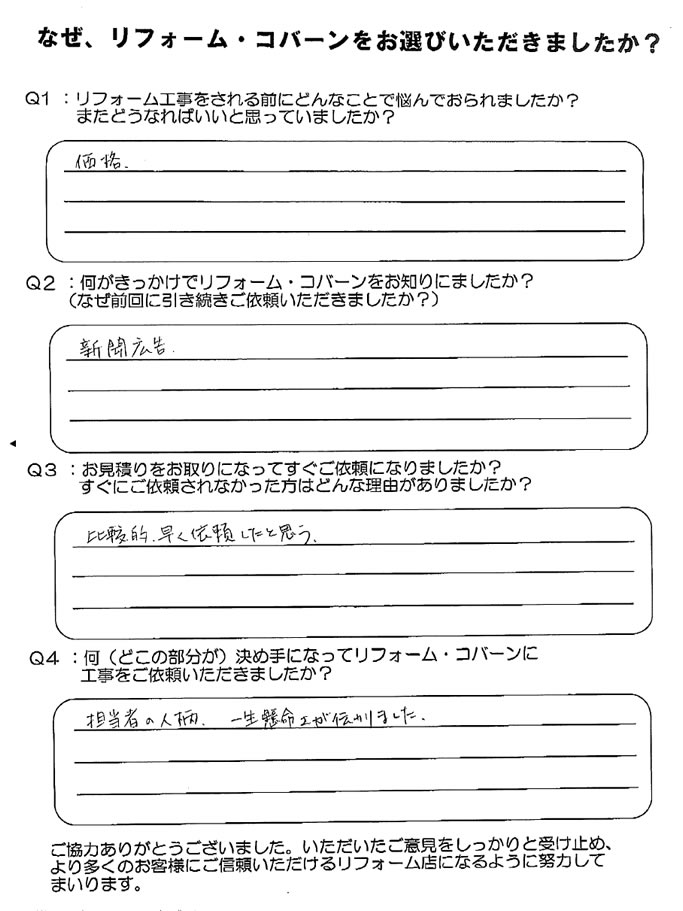 なぜ、リフォーム・コバーンをお選びいただきましたか?
Q1 :リフォーム工事をされる前にどんなことで悩んでおられましたか?
またどうなればいいと思っていましたか?
価格.
Q2 :何がきっかけでリフォーム・コバーンをお知りにましたか?
(なぜ前回に引き続きご依頼いただきましたか?)
新聞広告.
Q3 :お見積りをお取りになってすぐご依頼になりましたか?
すぐにご依頼されなかった方はどんな理由がありましたか?
比較的.早く依頼したと思う.
Q4 :何(どこの部分が)決め手になってリフォーム・コバーンに
工事をご依頼いただきましたか?
担当者の人柄. 一生懸命さが伝わりました.
ご協力ありがとうございました。いただいたご意見をしっかりと受け止め、
より多くのお客様にご信頼いただけるリフォーム店になるように努力して
まいります。